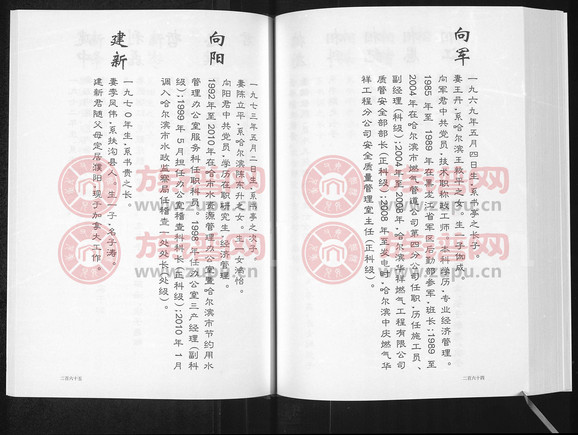 向军
一九六九年五月四日生,系书亭之长子。
妻王丹,系哈尔滨王毅平之女。生一子
向军君中共党员,技术职称政工师,本科学历,专业经济管理。
1985年至1989年在黑龙江省军区后勤部参军,班长;1989至
2004年在哈尔滨市燃气管道公司第四分公司任职,历任施工员、
副经理(科级);2004年至2008年,哈尔滨卡祥燃气工程有限公司
质管安全部部长(正科级);2008年至发电时,哈尔滨中庆燃气华
祥工程分公司安全质量管理室主任(正科级)。
二百六十四
向阳
一九七三年五月二日生,系书亭之次子。
妻陈立平,系哈尔滨陈东升之女。生一女
向阳君中共党员,学历在职研究生,经济管理。
1992年至2010年在哈市水资源管理办公室暨哈尔滨市节约用水
管理办公室服务科任职科员。1998年任办公室三产经理(副科
级);1999年5月担任办公室稽查科科长(正科级);2010年1月
调入哈尔滨市水政监察局任稽查一处处长(处级)。
建新
一九七〇年生,系书贵之长
妻李凤伟,系扶沟县人。生一子,名子涛。
建新君随父母定居濮阳,现于加拿大工作。
二百六十五
族谱网
www.zupu.cn
族谱网
www.zupu.cn
族谱网
www.zupu.cn
族谱网
www.zupu.cn